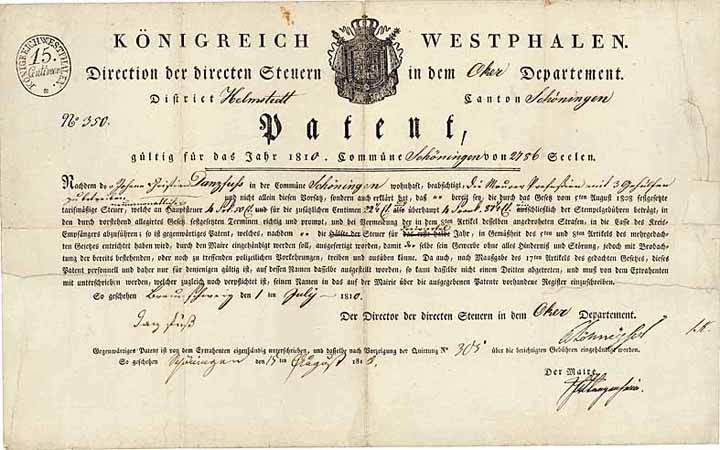 KÖNIGREICH WESTPHALEN.
KÖNIGREICH WESTPHALEN
15.
Centimen
Direction der directen Steuern in dem Oker Departement.
District Helmstedt Canton Schöningen
No 350.
Patent,
gültig für das Jahr 1810. Commüne Schöningen von 2756 Seelen.
Nachdem de Johann Christian Danzfuss in der Commüne Schöningen wohnhaft, beabsichtigt, die Maurer Profession mit 3 Gehülfen
zu betreiben und nicht allein diesen Vorsatz, sondern auch erklärt hat, daß er bereit sey, die durch das Gesetz vom 5ten August 1808 festgesetzte
tarifmäßige Steuer, welche an Hauptsteuer 4 Fr. 50 Ct. und für die zusätzlichen Centimen also überhaupt 4 ausschließlich der Stempelgebühren beträgt, in
den durch vorstehend allegirtes Gesetz festgesetzten Terminen richtig und prompt, und bei Vermeidung der in dem 8ten Artikel desselben angedroheten Strafen, in die Casse des Kreis-
Empfängers abzuführen; so ist gegenwärtiges Patent, welches, nachdem er die Hälfte der Steuer für das erste halbe Jahr, in Gemäßheit des 5ten und 6ten Artikels des mehrgedach-
ten Gesetzes entrichtet haben wird, durch den Maire eingehändigt werden soll, ausgefertigt worden, damit selbe sein Gewerbe ohne alles Hinderniß und Störung, jedoch mit Beobach-
tung der bereits bestehenden, oder noch zu treffenden polizeilichen Vorkehrungen, treiben und ausüben könne. Da auch, nach Maaßgabe des 17ten Artikels des gedachten Gesetzes, dieses
Patent personnell und daher nur für denjenigen gültig ist, auf dessen Namen dasselbe ausgestellt worden, so kann dasselbe nicht einem Dritten abgetreten, und muß von dem Extrahenten
mit unterschrieben werden, welcher zugleich noch verpflichtet ist, seinen Namen in das auf der Mairie über die ausgegebenen Patente vorhandene Register einzuschreiben.
So geschehen Braunschweig den 1 im July 1810.
Der Director der directen Steuern in dem Oker Departement.
Danzfuß
Gegenwärtiges Patent ist von dem Extrahenten eigenhändig unterschrieben, und dasselbe nach Vorzeigung der Quittung No 305 über die berichtigten Gebühren eingehändigt worden.
So geschehen Schöningen den 15 im August 181
Der Maire.